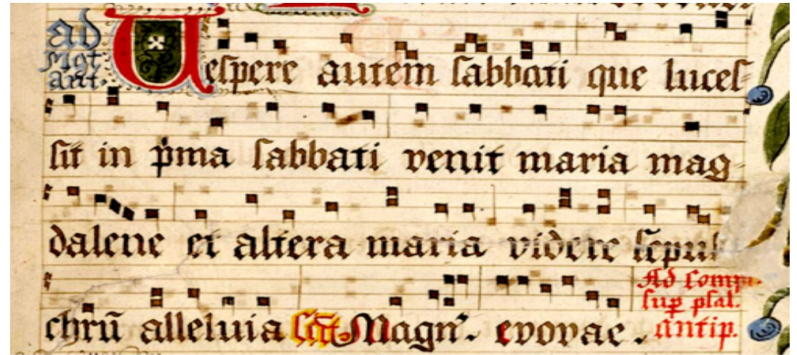 ad
Mgt
ant.
Vespere autem sabbati que luces-
sit in pma sabbati venit maria mag-
dalene et altera maria videre sepul-
chrū alleluia Magn. evovae.
Ad Comp-
sup psal.
antip.